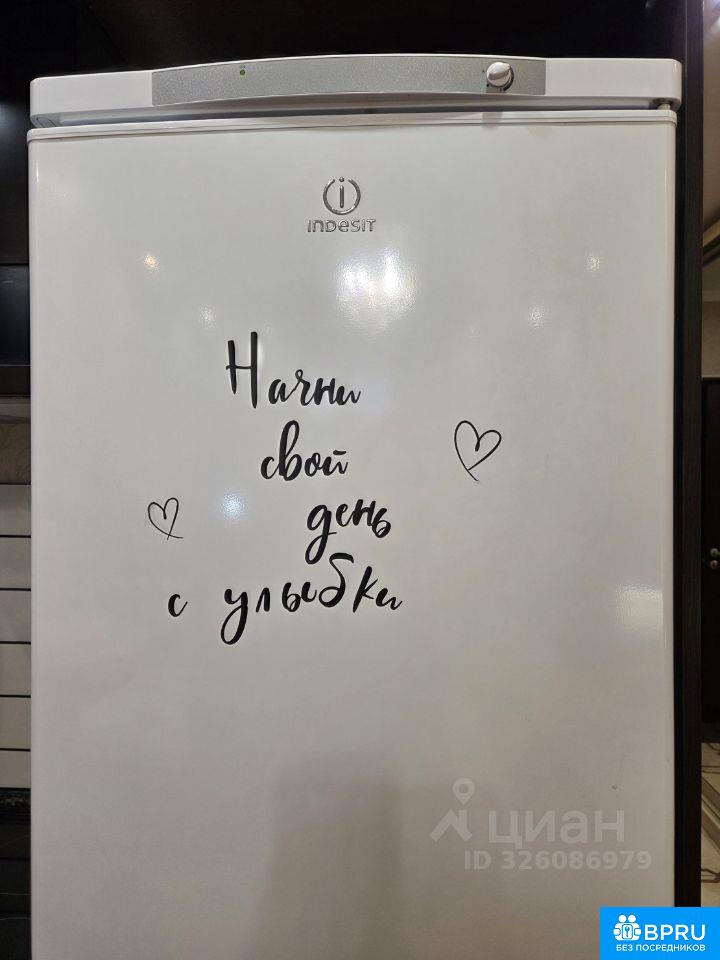 INDESIT
Начни
свой
день
с улыбки
циан
ID 326086979
BPRU
БЕЗ ПОСРЕДНИКОВ